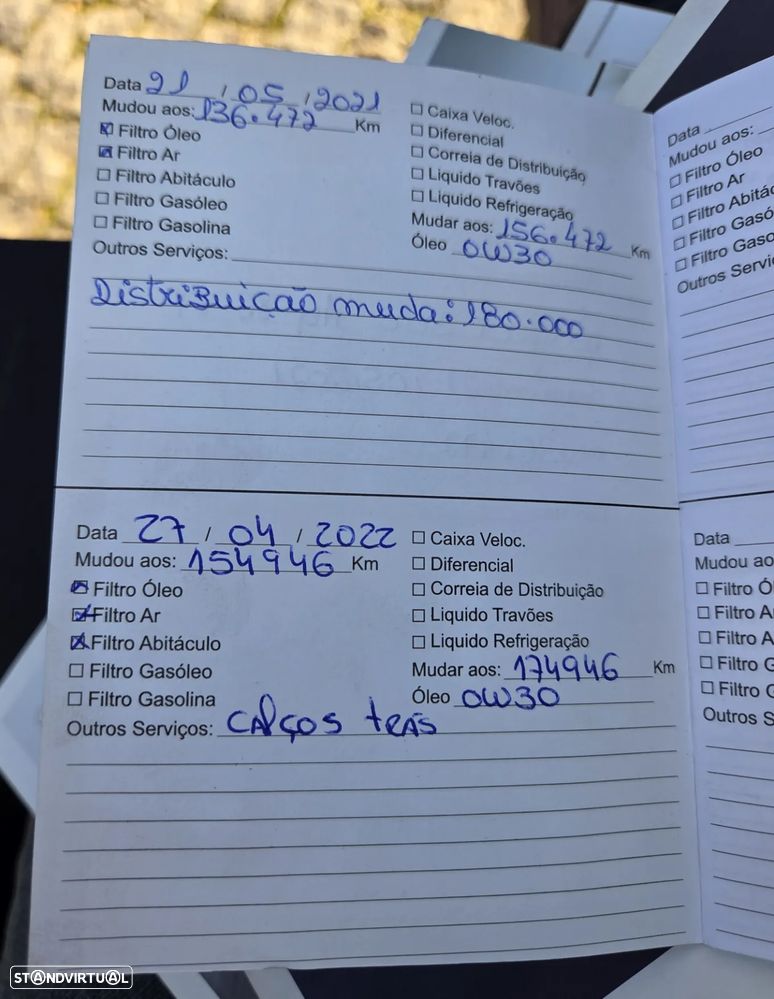 Data 21 / 05 / 2021
Mudou aos: 136.472 Km
Filtro Óleo
Filtro Ar
Filtro Abitáculo
Filtro Gasóleo
Filtro Gasolina
Outros Serviços:
Caixa Veloc.
Diferencial
Correia de Distribuição
Liquido Travões
Liquido Refrigeração
Mudar aos: 156.472 Km
Óleo 0W30
Distribuição muda: 180.000
Data 27 / 04 / 2022
Mudou aos: 154946 Km
Filtro Óleo
Filtro Ar
Filtro Abitáculo
Filtro Gasóleo
Filtro Gasolina
Caixa Veloc.
Diferencial
Correia de Distribuição
Liquido Travões
Liquido Refrigeração
Mudar aos: 174946 Km
Óleo 0W30
Outros Serviços: CAlÇOS tRÁS
Data
Mudou aos:
Filtro Óleo
Filtro Ar
Filtro Abitác
Filtro Gasó
Filtro Gaso
Outros Servi
Data
Mudou ao
Filtro Ó
Filtro A
Filtro A
Filtro G
Filtro G
Outros S
STANDVIRTUAL